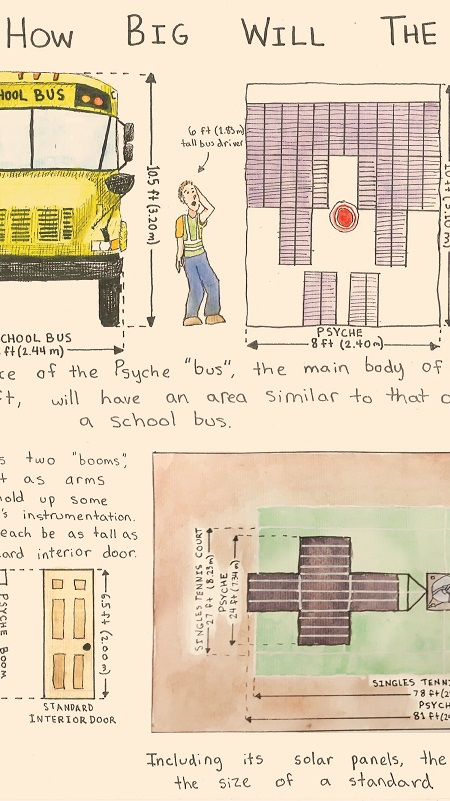 HOW BIG WILL THE
HOOL BUS
6 ft (1.83m)
tall bus driver
10.5 ft (3.20 m)
CHOOL BUS
ft (2.44 m)
PSYCHE
8 ft (2.40m)
ce of the Psyche "bus", the main body of
ft, will have an area similar to that o
a school bus.
s two "booms",
t as arms
hold up some
's instrumentation.
each be as tall as
dard interior door.
PSYCHE BOOM
6.5 ft (2.00 m)
STANDARD
INTERIOR DOOR
SINGLES TENNIS COURT
27 ft (8.23m)
PSYCHE
24 ft (7.34m)
SINGLES TENNI
78 ft (2
PSYCH
81 ft (2
Including its solar panels, the
the size of a standard